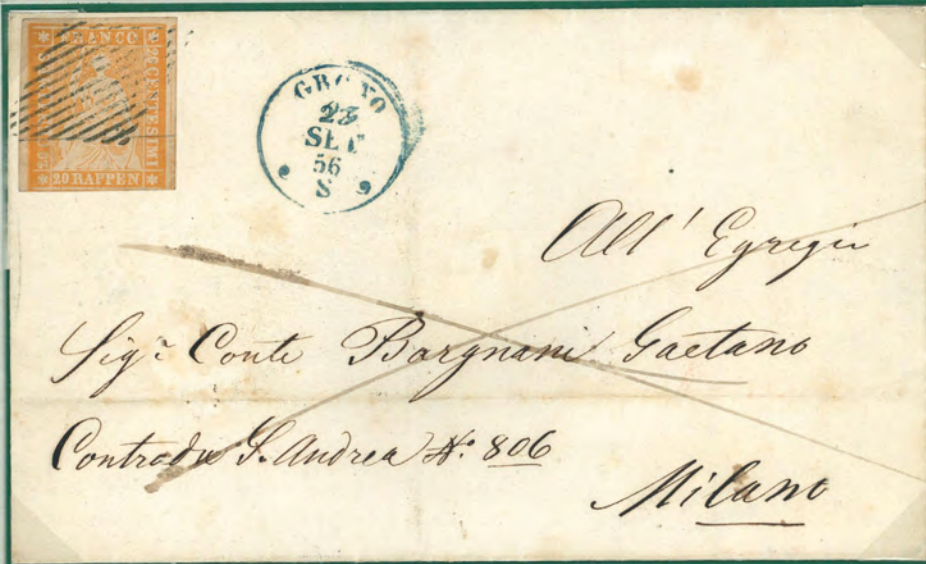 FRANCO
26 CENTESIMI
20 RAPPEN
23
56
S
All' Egregio
Sigr. Conte Borgnani Gaetano
Contrada S. Andrea No. 806
Milano